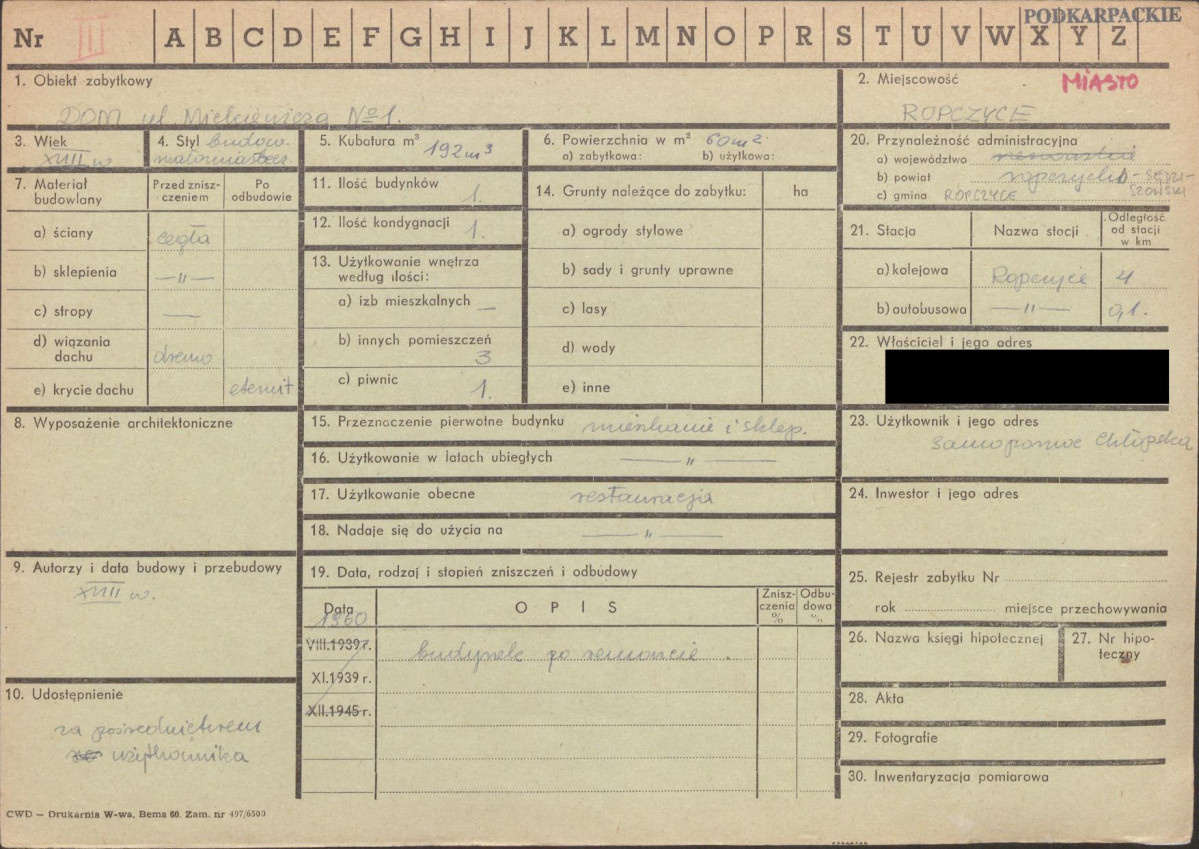 Nr III A B C D E F G H I J K L M N O P R S T U V W X Y Z PODKARPACKIE
1. Obiekt zabytkowy
DOM ul. Mickiewicza No 1.
2. Miejscowość MIASTO
ROPCZYCE
3. Wiek
XVIII w
4. Styl budown.
małomiastecz.
5. Kubatura m³ 192 m³
6. Powierzchnia w m² 60 m²
a) zabytkowa: b) użytkowa:
20. Przynależność administracyjna
a) województwo rzeszowskie
b) powiat ropczycko - SĘDZI-
SZOWSKI
c) gmina ROPCZYCE
7. Materiał
budowlany
Przed znisz-
czeniem
Po
odbudowie
a) ściany cegła
b) sklepienia — " —
c) stropy —
d) wiązania
dachu drewno
e) krycie dachu eternit
11. Ilość budynków 1.
12. Ilość kondygnacji 1.
13. Użytkowanie wnętrza
według ilości:
a) izb mieszkalnych —
b) innych pomieszczeń
3
c) piwnic 1.
14. Grunty należące do zabytku: ha
a) ogrody stylowe
b) sady i grunty uprawne
c) lasy
d) wody
e) inne
21. Stacja Nazwa stacji Odległość
od stacji
w km
a) kolejowa Ropczyce 4
b) autobusowa — " — 0,1.
22. Właściciel i jego adres
8. Wyposażenie architektoniczne
15. Przeznaczenie pierwotne budynku mieszkanie i sklep.
16. Użytkowanie w latach ubiegłych — " —
17. Użytkowanie obecne restauracja
18. Nadaje się do użycia na — " —
23. Użytkownik i jego adres
Samopomoc Chłopska
24. Inwestor i jego adres
9. Autorzy i data budowy i przebudowy
XVIII w.
10. Udostępnienie
za pośrednictwem
użytkownika
19. Data, rodzaj i stopień zniszczeń i odbudowy
Data OPIS Znisz-
czenia
%
Odbu-
dowa
%
1960
VIII.1939 r. budynek po remoncie.
XI.1939 r.
XII.1945 r.
25. Rejestr zabytku Nr
rok miejsce przechowywania
26. Nazwa księgi hipotecznej
27. Nr hipo-
teczny
28. Akta
29. Fotografie
30. Inwentaryzacja pomiarowa
CWD — Drukarnia W-wa, Bema 60. Zam. nr 497/6500